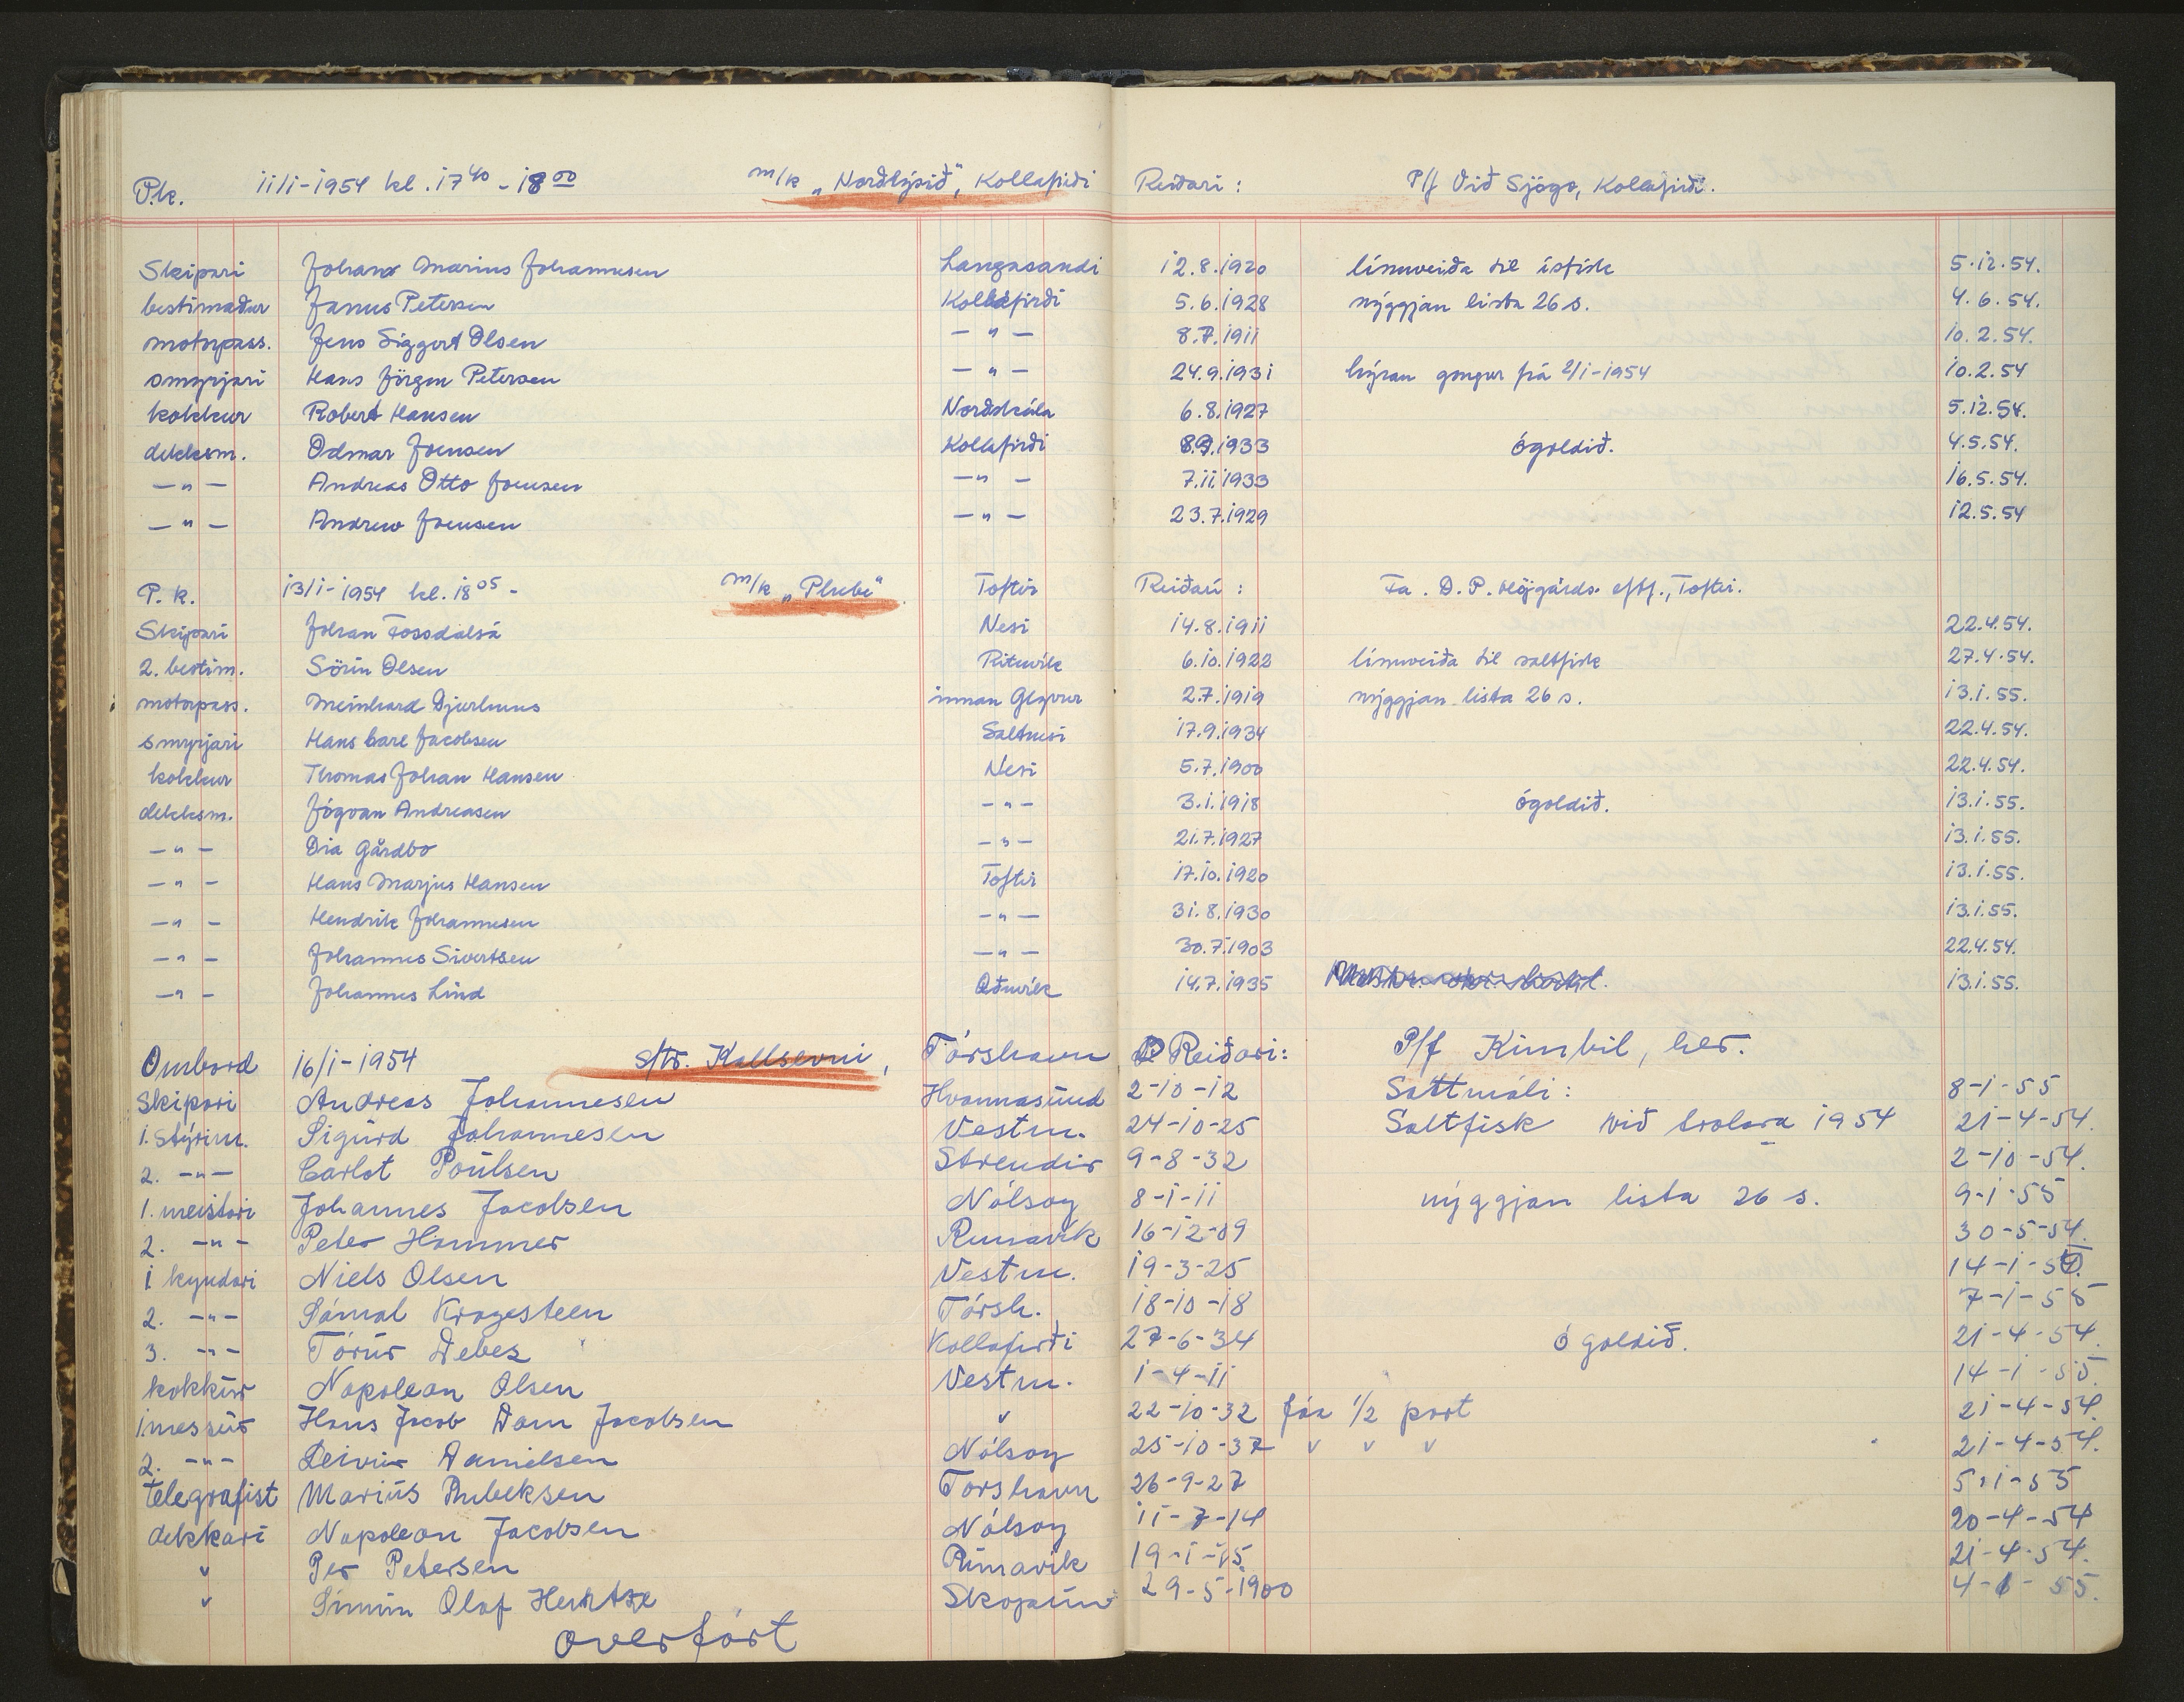 P.k. 11/1-1954 kl. 17 40 - 18 00 m/k „Norðlýsið", Kollafirði Reiðari: P/f Við Sjógv, Kollafirði.
Skipari Johan Marius Johannesen Langasandi 12.8.1920 línuveiða til ísfisk 5.12.54.
bestimaður Janus Petersen Kollafirði 5.6.1928 nýggjan lista 26 s. 4.6.54.
motorpass. Jens Siggert Olsen —"— 8.7.1911 10.2.54.
smyrjari Hans Jørgen Petersen —"— 24.9.1931 hýran gongur frá 2/1-1954 10.2.54
kokkur Robert Hansen Norðskála 6.8.1927 5.12.54.
dekksm. Odmar Joensen Kollafirði 8.9.1933 ógoldið. 4.5.54.
—"— Andreas Otto Joensen —"— 7.11.1933 16.5.54.
—"— Andrew Joensen —"— 23.7.1929 12.5.54
P.k. 13/1-1954 kl. 18 05 - m/k „Phebe". Toftir Reiðari: Fa. D. P. Højgårds eftf., Toftir.
Skipari Johan Fossdalsá Nesi 14.8.1911 22.4.54.
2. bestim. Sörin Olsen Rituvík 6.10.1922 línuveiða til saltfisk 27.4.54.
motorpass. Meinhard Djurhuus innan Glyvur 2.7.1919 nýggjan lista 26 s. 13.1.55.
smyrjari Hans Carl Jacobsen Saltnesi 17.9.1934 22.4.54.
kokkur Thomas Johan Hansen Nesi 5.7.1900 22.4.54.
dekksm. Jógvan Andreasen —"— 3.1.1918 ógoldið. 13.1.55.
—"— Dia Gårdbo —"— 21.7.1927 13.1.55.
—"— Hans Marjus Hansen Toftir 17.10.1920 13.1.55.
—"— Hendrik Johannesen —"— 31.8.1930 13.1.55.
—"— Johannes Sivertsen —"— 30.7.1903 22.4.54.
—"— Johannes Lind Æðuvík 14.7.1935 13.1.55.
Ombord 16/1-1954 s/tr. Kallsevni, Tórshavn Reiðari: P/f Kimbil, her.
Skipari Andreas Johannesen Hvannasund 2-10-12 Sáttmáli: 8-1-55
1. stýrim. Sigurd Johannesen Vestm. 24-10-25 Saltfisk við trolara 1954 21-4-54.
2. —"— Carlot Poulsen Strendir 9-8-32 2-10-54.
1. meistari Johannes Jacobsen Nólsoy 8-1-11 nýggjan lista 26 s. 9-1-55
2. —"— Peter Hammer Runavík 16-12-09 30-5-54.
1 kyndari Niels Olsen Vestm. 19-3-25 14-1-5
2. —"— Sámal Kragesteen Tórsh. 18-10-18 7-1-55
3. —"— Tórur Debes Kollafirði 27-6-34 ógoldið. 21-4-54.
kokkur Napolean Olsen Vestm. 1-4-11 14-1-55.
1 messur Hans Jacob Dam Jacobsen v 22-10-32 fáa 1/2 part 21-4-54.
2. —"— Leivur Danielsen Nólsoy 25-10-37 v v v 21-4-54.
telegrafist Marius Rubeksen Torshavn 26-9-27 5-1-55
dekkari Napolean Jacobsen Nólsoy 11-7-14 20-4-54
v Per Petersen Runavik 19-1-15 21-4-54.
v Simun Olaf Hentze Skopun 29-5-1900 4-1-55.
overfórt